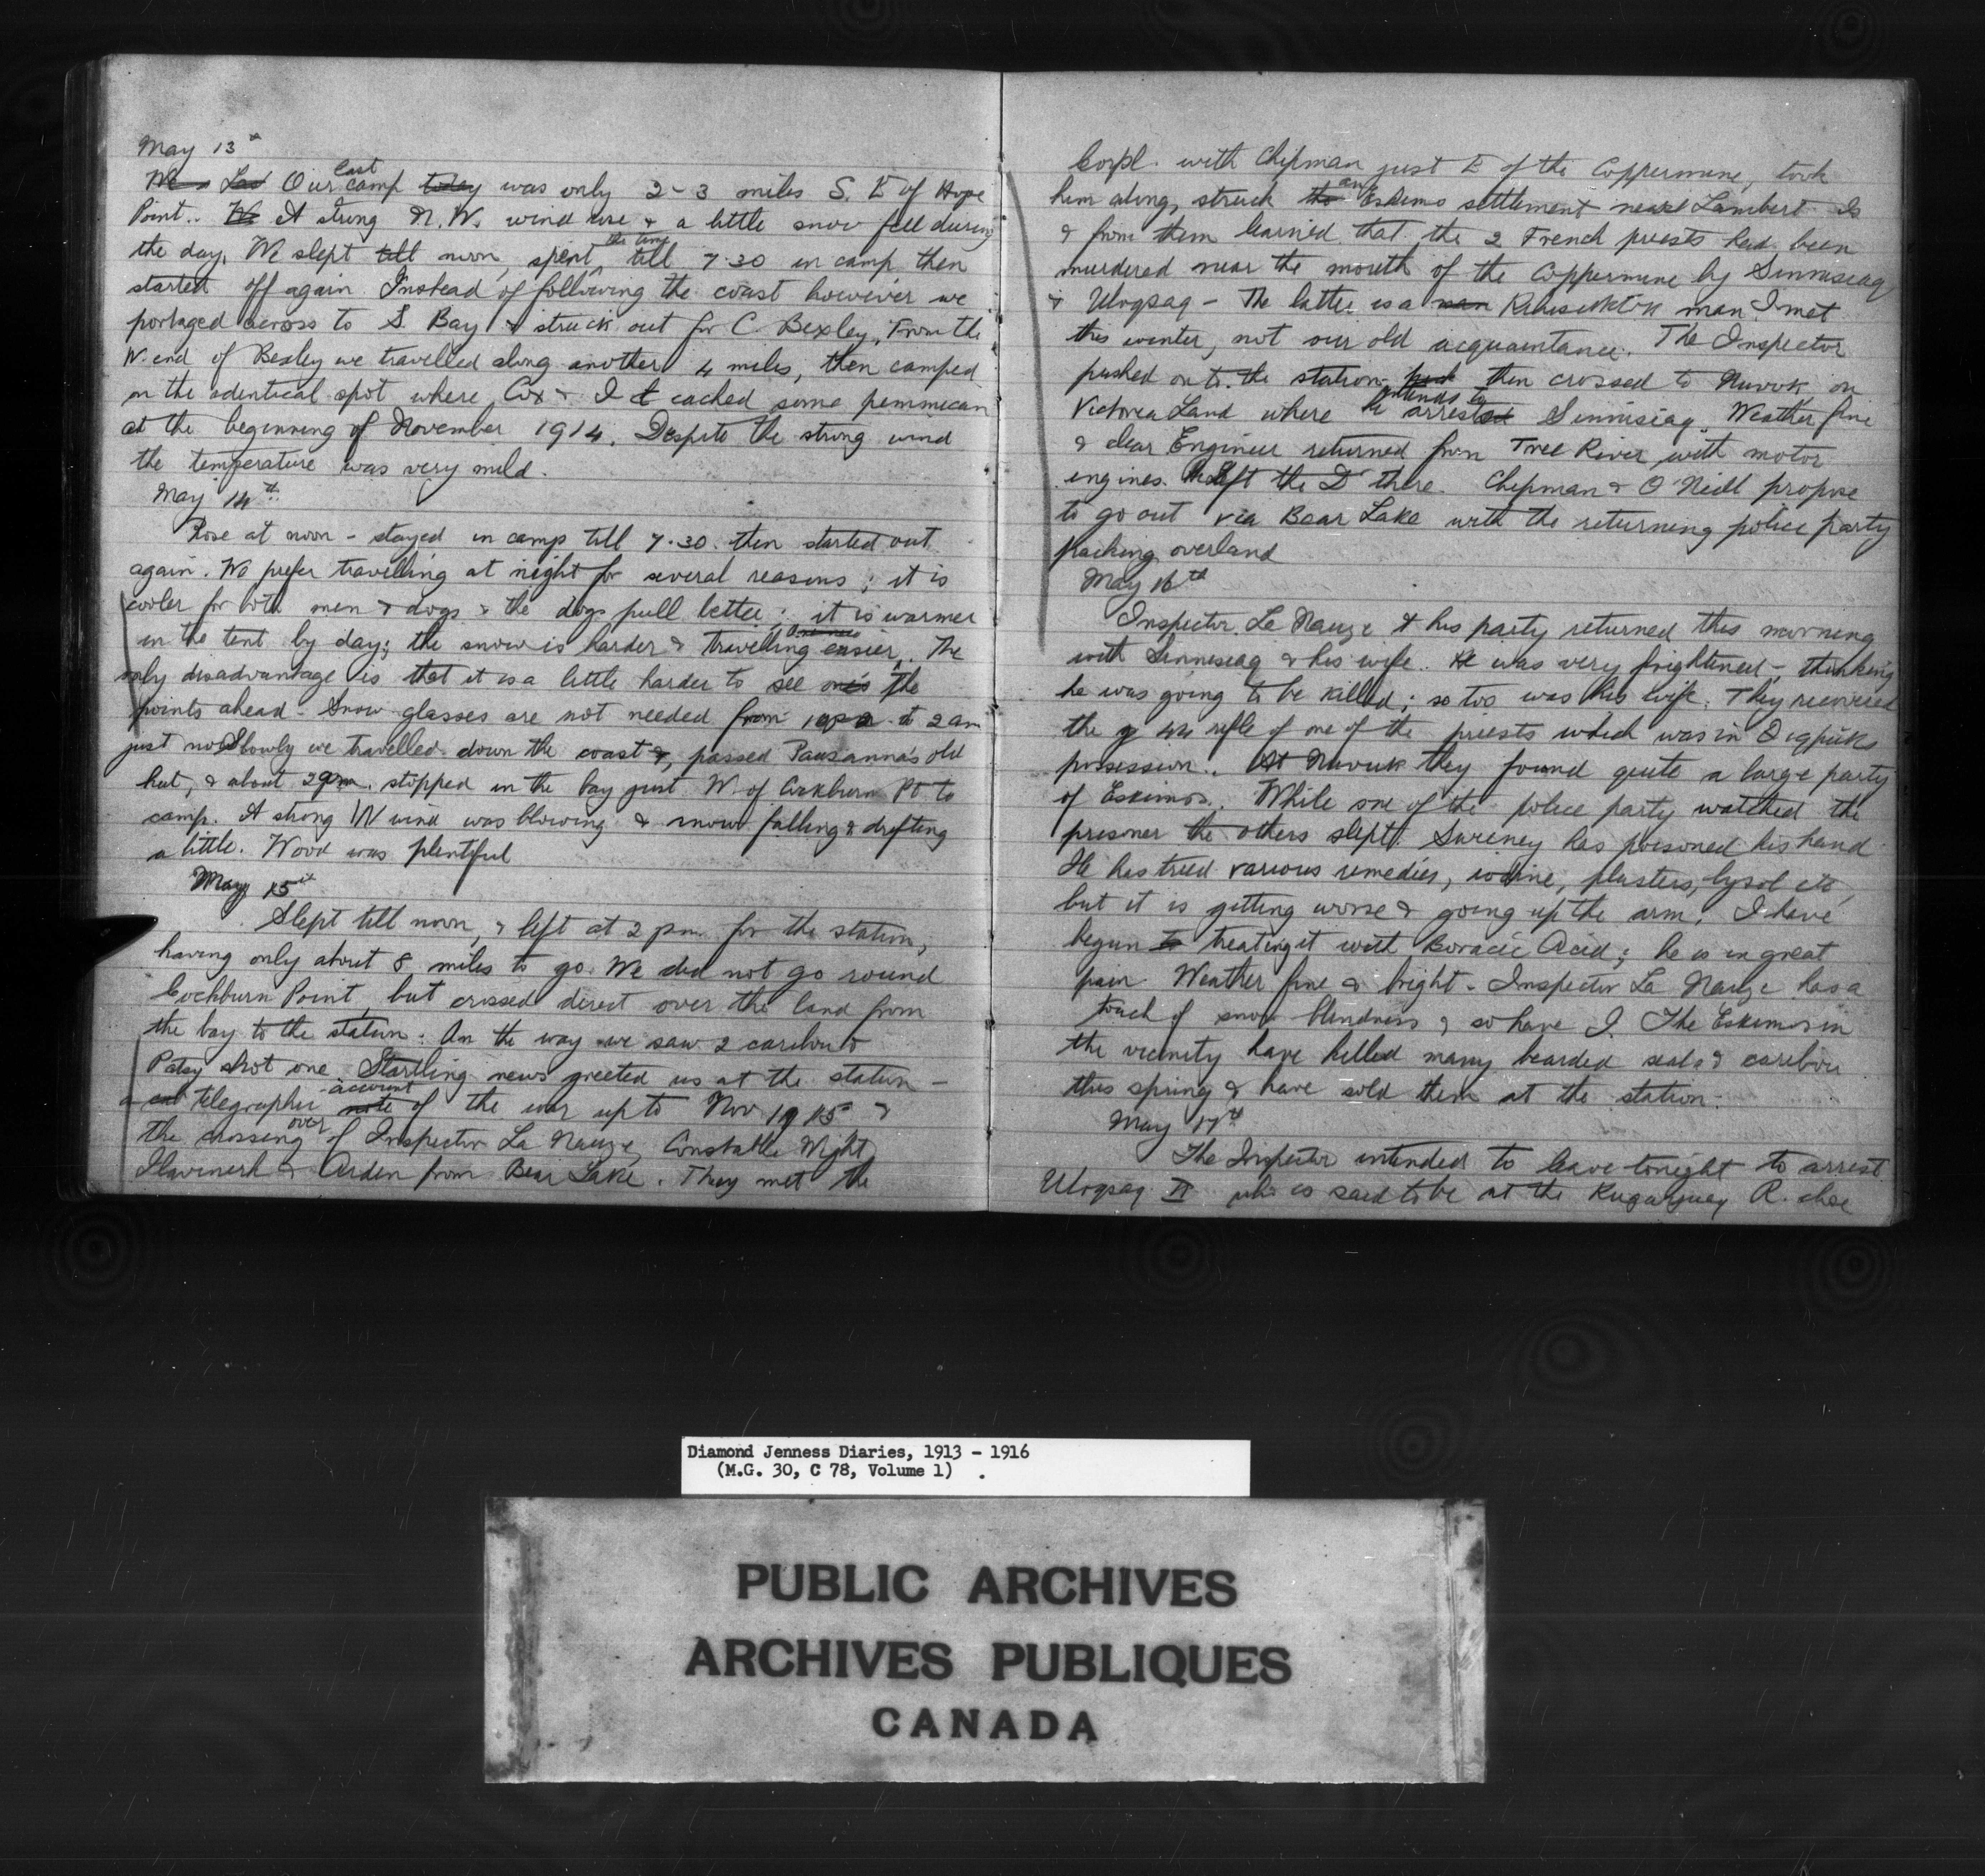 May 13th
We Las Our last camp today was only 2-3 miles S. E of Hope
Point.. We A strong N.W. wind rose & a little snow fell during
the day. We slept till noon, spent the time till 7.30 in camp then
started off again. Instead of following the coast however we
portaged across to S. Bay & struck out for C. Bexley. From the
W. end of Bexley we travelled along another 4 miles, then camped
on the identical spot where Cox & I cached some pemmican
at the beginning of November 1914. Despite the strong wind
the temperature was very mild.
May 14th
Rose at noon - stayed in camp till 7.30. then started out
again. We prefer travelling at night for several reasons; it is
cooler for both men & dogs & the dogs pull better; it is warmer
in the tent by day; the snow is harder & travelling easier. The
only disadvantage is that it is a little harder to see one's the
points ahead - Snow glasses are not needed from 10 p.m. to 2 am
just now. Slowly we travelled down the coast &, passed Pauzanna's old
hut, & about 2 am. stopped in the bay just W. of Cockburn Pt. to
camp. A strong W wind was blowing & snow falling & drifting
a little. Wood was plentiful
May 15th
Slept till noon, & left at 2 pm. for the station,
having only about 8 miles to go. We did not go round
Cockburn Point, but crossed direct over the land from
the bay to the station. On the way we saw 2 caribou &
Patsy shot one. Startling news greeted us at the station -
a cab telegraphic note account of the war up to Nov 1915 &
the crossing over of Inspector La Nauze, Constable Wight,
Ilavinerk & Arden from Bear Lake. They met the
Corpl. with Chipman just E of the Coppermine, took
him along, struck the an Eskimo settlement near Lambert Is
& from them learned that the 2 French priests had been
murdered near the mouth of the Coppermine by Sinnisiaq
& Uloqsaq - The latter is a man man I met
this winter, not our old acquaintance. The Inspector
pushed on to the station, then crossed to Nuvuk on
Victoria Land where he intends to arrested Sinnisiaq. Weather fine
& clear Engineer returned from Tree River with motor
engines. He left the D there. Chipman & O'Neill propose
to go out via Bear Lake with the returning police party
packing overland
May 16th
Inspector La Nauze & his party returned this morning
with Sinnisiaq & his wife. He was very frightened -, thinking
he was going to be killed; so too was his wife. They recovered
the 44 rifle of one of the priests which was in Oqpiks
possession. At Nuvuk they found quite a large party
of Eskimos. While one of the police party watched the
prisoner the others slept. Sweeney has poisoned his hand
He has tried various remedies, iodine, plasters, lysol etc,
but it is getting worse & going up the arm. I have
begun to treating it with Boracic Acid; he is in great
pain. Weather fine & bright - Inspector La Nauze has a
touch of snow blindness & so have I. The Eskimos in
the vicinity have killed many bearded seals & caribou
this spring & have sold them at the station.
May 17th
The Inspector intended to leave tonight to arrest
Uloqsaq II who is said to be at the Kugaryuaq R. close
Diamond Jenness Diaries, 1913 - 1916
(M.G. 30, C 78, Volume 1) .
PUBLIC ARCHIVES
ARCHIVES PUBLIQUES
CANADA